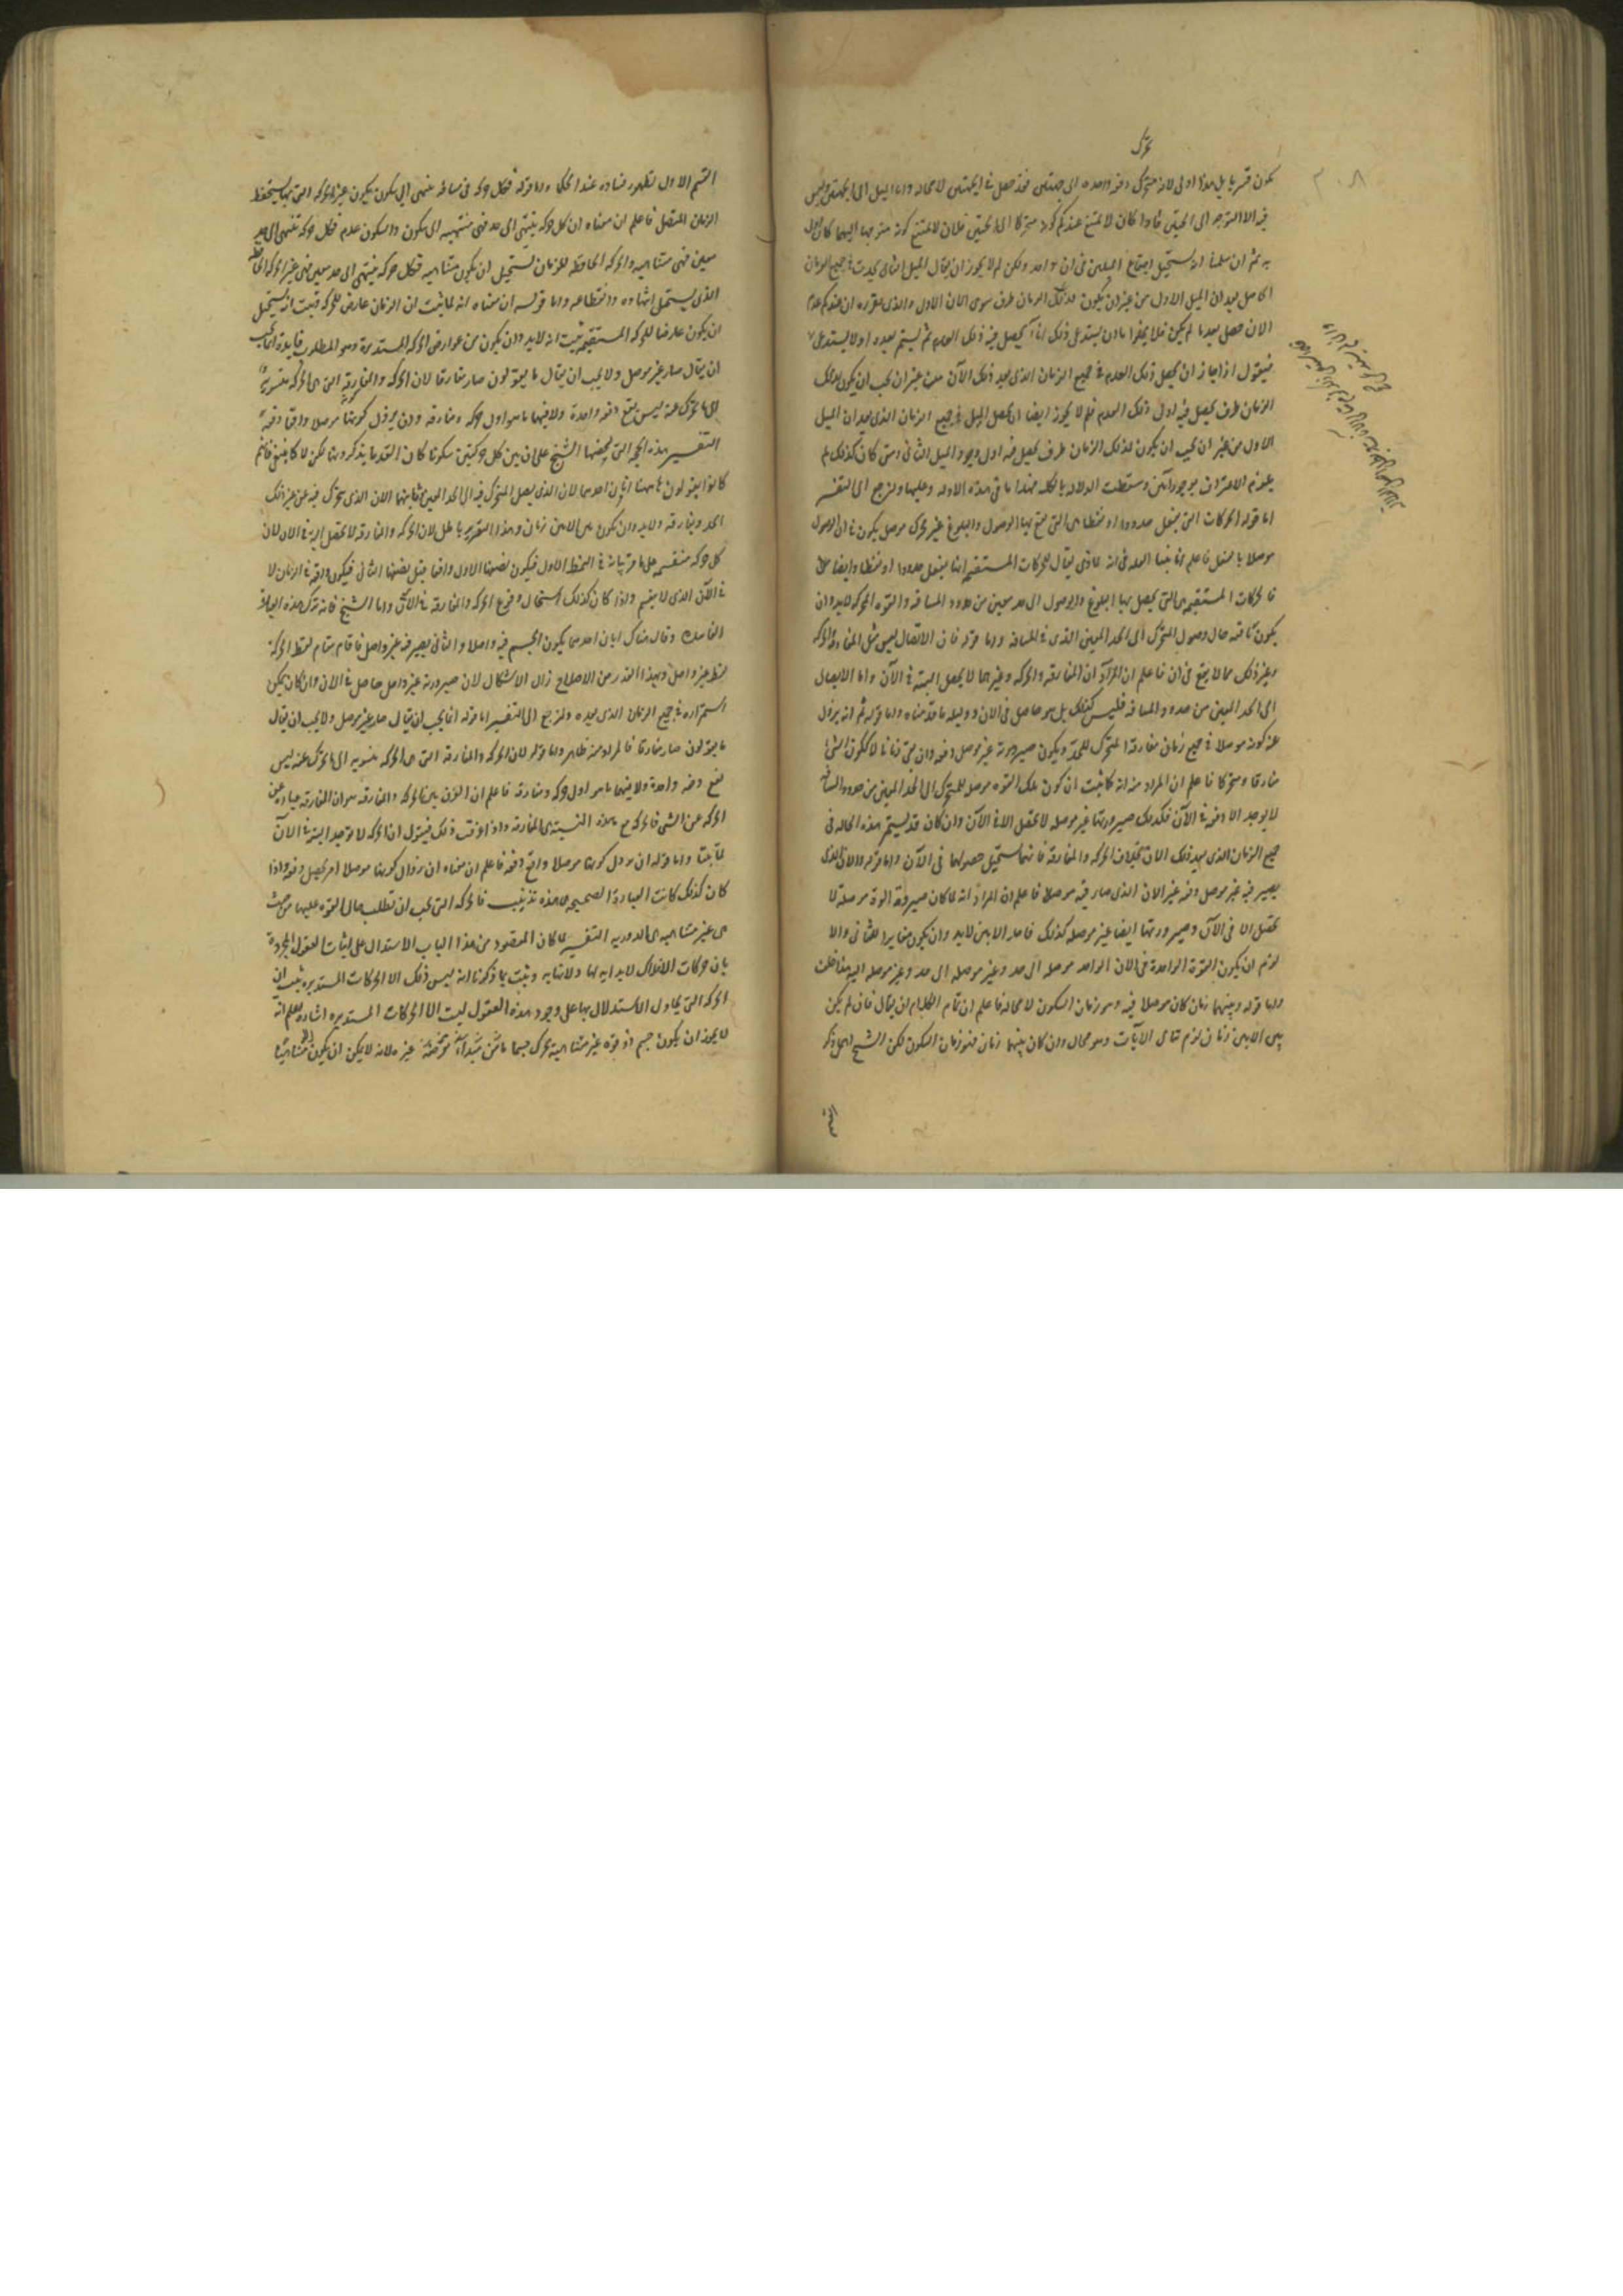 يكون قسريا بل هذا اولى لانه متحرك دفعه واحده الى جهتين فقد حصل فى الجهتين لا محاله واما الميل الى الجهتين فليس
فيه الا التوجه الى الجهتين فاذا كان لا يمتنع عندكم كونه متحركا الى الجهتين فلان لا يمتنع كونه متوجها اليهما كان اولى
به ثم ان سلمنا انه يستحيل اجتماع الميلين فى ان واحد ولكن لم لا يجوز ان يقال الميل الثانى يحدث فى جميع الزمان
الحاصل بعد ان الميل الاول من غير ان يكون لذلك الزمان طرف سوى الان الاول والذى يقرره ان عندكم عدم
الان حصل بعد ما لم يكن فلا يخلو اما ان يستدعى ذلك اناً يحصل فيه ذلك العدم ثم يستمر بعده او لا يستدعى
فنقول اذا جاز ان يحصل ذلك العدم فى جميع الزمان الذى بعد ذلك الآن من غير ان يجب ان يكون لذلك
الزمان طرف يحصل فيه اول ذلك العدم فلم لا يجوز ايضا ان يحصل الميل فى جميع الزمان الذى بعد ان الميل
الاول من غير ان يجب ان يكون لذلك الزمان طرف يحصل فيه اول وجود الميل الثانى ومتى كان كذلك لم
يلزم الاعتراف بوجود آنين وسقطت الدلاله بالكليه فهذا ما فى هذه الادله وعليها ولنرجع الى التفسير
اما قوله الحركات التى تفعل حدودا او نقطا هى التى يقع بها الوصول والبلوغ عن محرك موصل يكون فى ان الوصول
موصلا بالفعل فاعلم انا بينا العله فى انه لماذى يقال للحركات المستقيمه انها يفعل حدودا او نقطا وايضا
فالحركات المستقيمه هى التى يحصل بها البلوغ والوصول الى حد معين من حدود المسافه والقوه المحركه لا بد وان
يكون باقيه حال وصول المتحرك الى الحد المعين الذى فى المسافه واما قوله فان الاتصال ليس مثل المفارقه والحركه
وغير ذلك مما لا يقع فى ان فاعلم ان المراد ان المفارقه والحركه وغيرهما لا يحصل البته فى الآن واما الايصال
الى الحد المعين من حدود المسافه فليس كذلك بل هو حاصل فى الان ودليله ما قدمناه واما قوله ثم انه يزول
عنه كونه موصلا فى جميع زمان مفارقة المتحرك للحد ويكون صيرورته غير موصل دفعه وان بقى زمانا لا ككون الشئ
مفارقا ومتحركا فاعلم ان المراد منه انه كما ثبت ان كون تلك القوه موصله للمتحرك الى الحد المعين من حدود المسافه
لا يوجد الا دفعه فى الآن فكذلك صيرورتها غير موصله لا يحصل الا فى الآن وان كان قد يستمر هذه الحاله فى
جميع الزمان الذى بعد ذلك الان بخلاف الحركه والمفارقه فانهما يستحيل حصولهما فى الآن واما قوله والان الذى
يصير فيه غير موصل دفعه غير الان الذى صار فيه موصلا فاعلم ان المراد انه لما كان صيروره القوه موصله لا
يحصل الا فى الآن وصيرورتها ايضا غير موصله كذلك فاحد الانين لا بد وان يكون مغايرا للثانى والا
لزم ان يكون القوه الواحدة فى الان الواحد موصله الى حد وغير موصله الى حد وغير موصله اليه هذا خلف
واما قوله وبينهما زمان كان موصلا فيه وهو زمان السكون لا محاله فاعلم ان تمام الكلام ان يقال فان لم يكن
بين الانين زمان لزم تتالى الآنات وهو محال وان كان بينهما زمان فهو زمان السكون لكن الشيخ اهمل ذكر
القسم الاول لظهور فساده عند الحكما واما قوله فكل حركه فى مسافه ينتهى الى سكون فيكون غير الحركه التى بها يستحفظ
الزمان المتصل فاعلم ان معناه ان كل حركه ينتهى الى حد فهى منتهيه الى سكون والسكون عدم فكل حركه تنتهى الى حد
معين فهى متناهيه والحركه الحافظه للزمان يستحيل ان يكون متناهيه فكل حركه ينتهى الى حد معين فهى غير الحركه الحافظه
الذى يستحيل انتهاءه وانقطاعه واما قوله ان معناه انه لما ثبت ان الزمان عارض للحركه فثبت انه يستحيل
ان يكون عارضا للحركه المستقيمه ثبت انه لا بد وان يكون من عوارض الحركه المستديرة وهو المطلوب فايدة انما يجب
ان يقال صار غير موصل ولا يجب ان يقال ما يقولون صار مفارقا لان الحركه والمفارقه التى هى الحركه منسوبة
الى ما يتحرك عنه ليس يقع دفعه واحدة ولا فيهما ما هو اول حركه ومفارقه وان يزول كونها موصلا واقعا دفعة
التفسير هذه الحجه التى لخصها الشيخ على ان بين كل حركتين سكونا كان القدما يذكرونها لكن لا كما ينبغى فانهم
كانوا يقولون هاهنا انان احدهما الان الذى يصل المتحرك فيه الى الحد المعين وثانيهما الان الذى يتحرك فيه عن غير ذلك
الحد ويفارقه ولا بد وان يكون بين الانين زمان وهذا التقرير باطل لان الحركه والمفارقه لا يحصل البته فى الان لان
كل حركه منقسمه على ما مر بيانه فى النمط الاول فيكون نصفها الاول واقعا قبل نصفها الثانى فيكون واقعه فى الزمان لا
فى الآن الذى لا ينقسم واذا كان كذلك استحال وقوع الحركه والمفارقه فى الآن واما الشيخ فانه ترك هذه العبارة
الفاسده وقال هناك انان احدهما يكون الجسم فيه واصلا والثانى يصير فيه غير واصل فاقام مقام لفظ الحركة
لفظ غير واصل وبهذا القدر من الاصلاح زال الاشكال لان صيرورته غير واصل حاصل فى الان وان كان يمكن
استمراره فى جميع الزمان الذى بعده ولنرجع الى التفسير اما قوله انما يجب ان يقال صار غير موصل ولا يجب ان يقال
ما يقولون صار مفارقا فالمراد منه ظاهر واما قوله لان الحركه والمفارقه التى هى الحركه منسوبه الى ما يتحرك عنه ليس
يقع دفعه واحدة ولا فيهما ما هو اول حركه ومفارقه فاعلم ان الفرق بين الحركه والمفارقه هو ان المفارقه عباره عن
الحركه عن الشى فالحركه مع هذه النسبة هى المفارقه واذا عرفت ذلك فيقول ان الحركه لا توجد البته فى الآن
لما بينا واما قوله ان يزول كونها موصلا واقع دفعه فاعلم ان معناه ان زوال كونها موصلا امر يحصل دفعه واذا
كان كذلك كانت العبارة الصحيحه هذه تذنيب فالحركه التى يجب ان يطلب حال القوه عليها من حيث
هى غير متناهيه هى الدوريه التفسير لما كان المقصود من هذا الباب الاستدلال على اثبات العقول المجردة
بان حركات الافلاك لا بدايه لها ولا نهايه وثبت بما ذكرنا انه ليس ذلك الا الحركات المستديره ثبت ان
الحركه التى يحاول الاستدلال بها على وجود هذه العقول ليست الا الحركات المستديره اشاره اعلم انه
لا يجوز ان يكون جسم اذ قوه غير متناهية يحرك جسما ما من مبدأ نفرضه غيره لانه لا يمكن ان يكون الا متناهيا